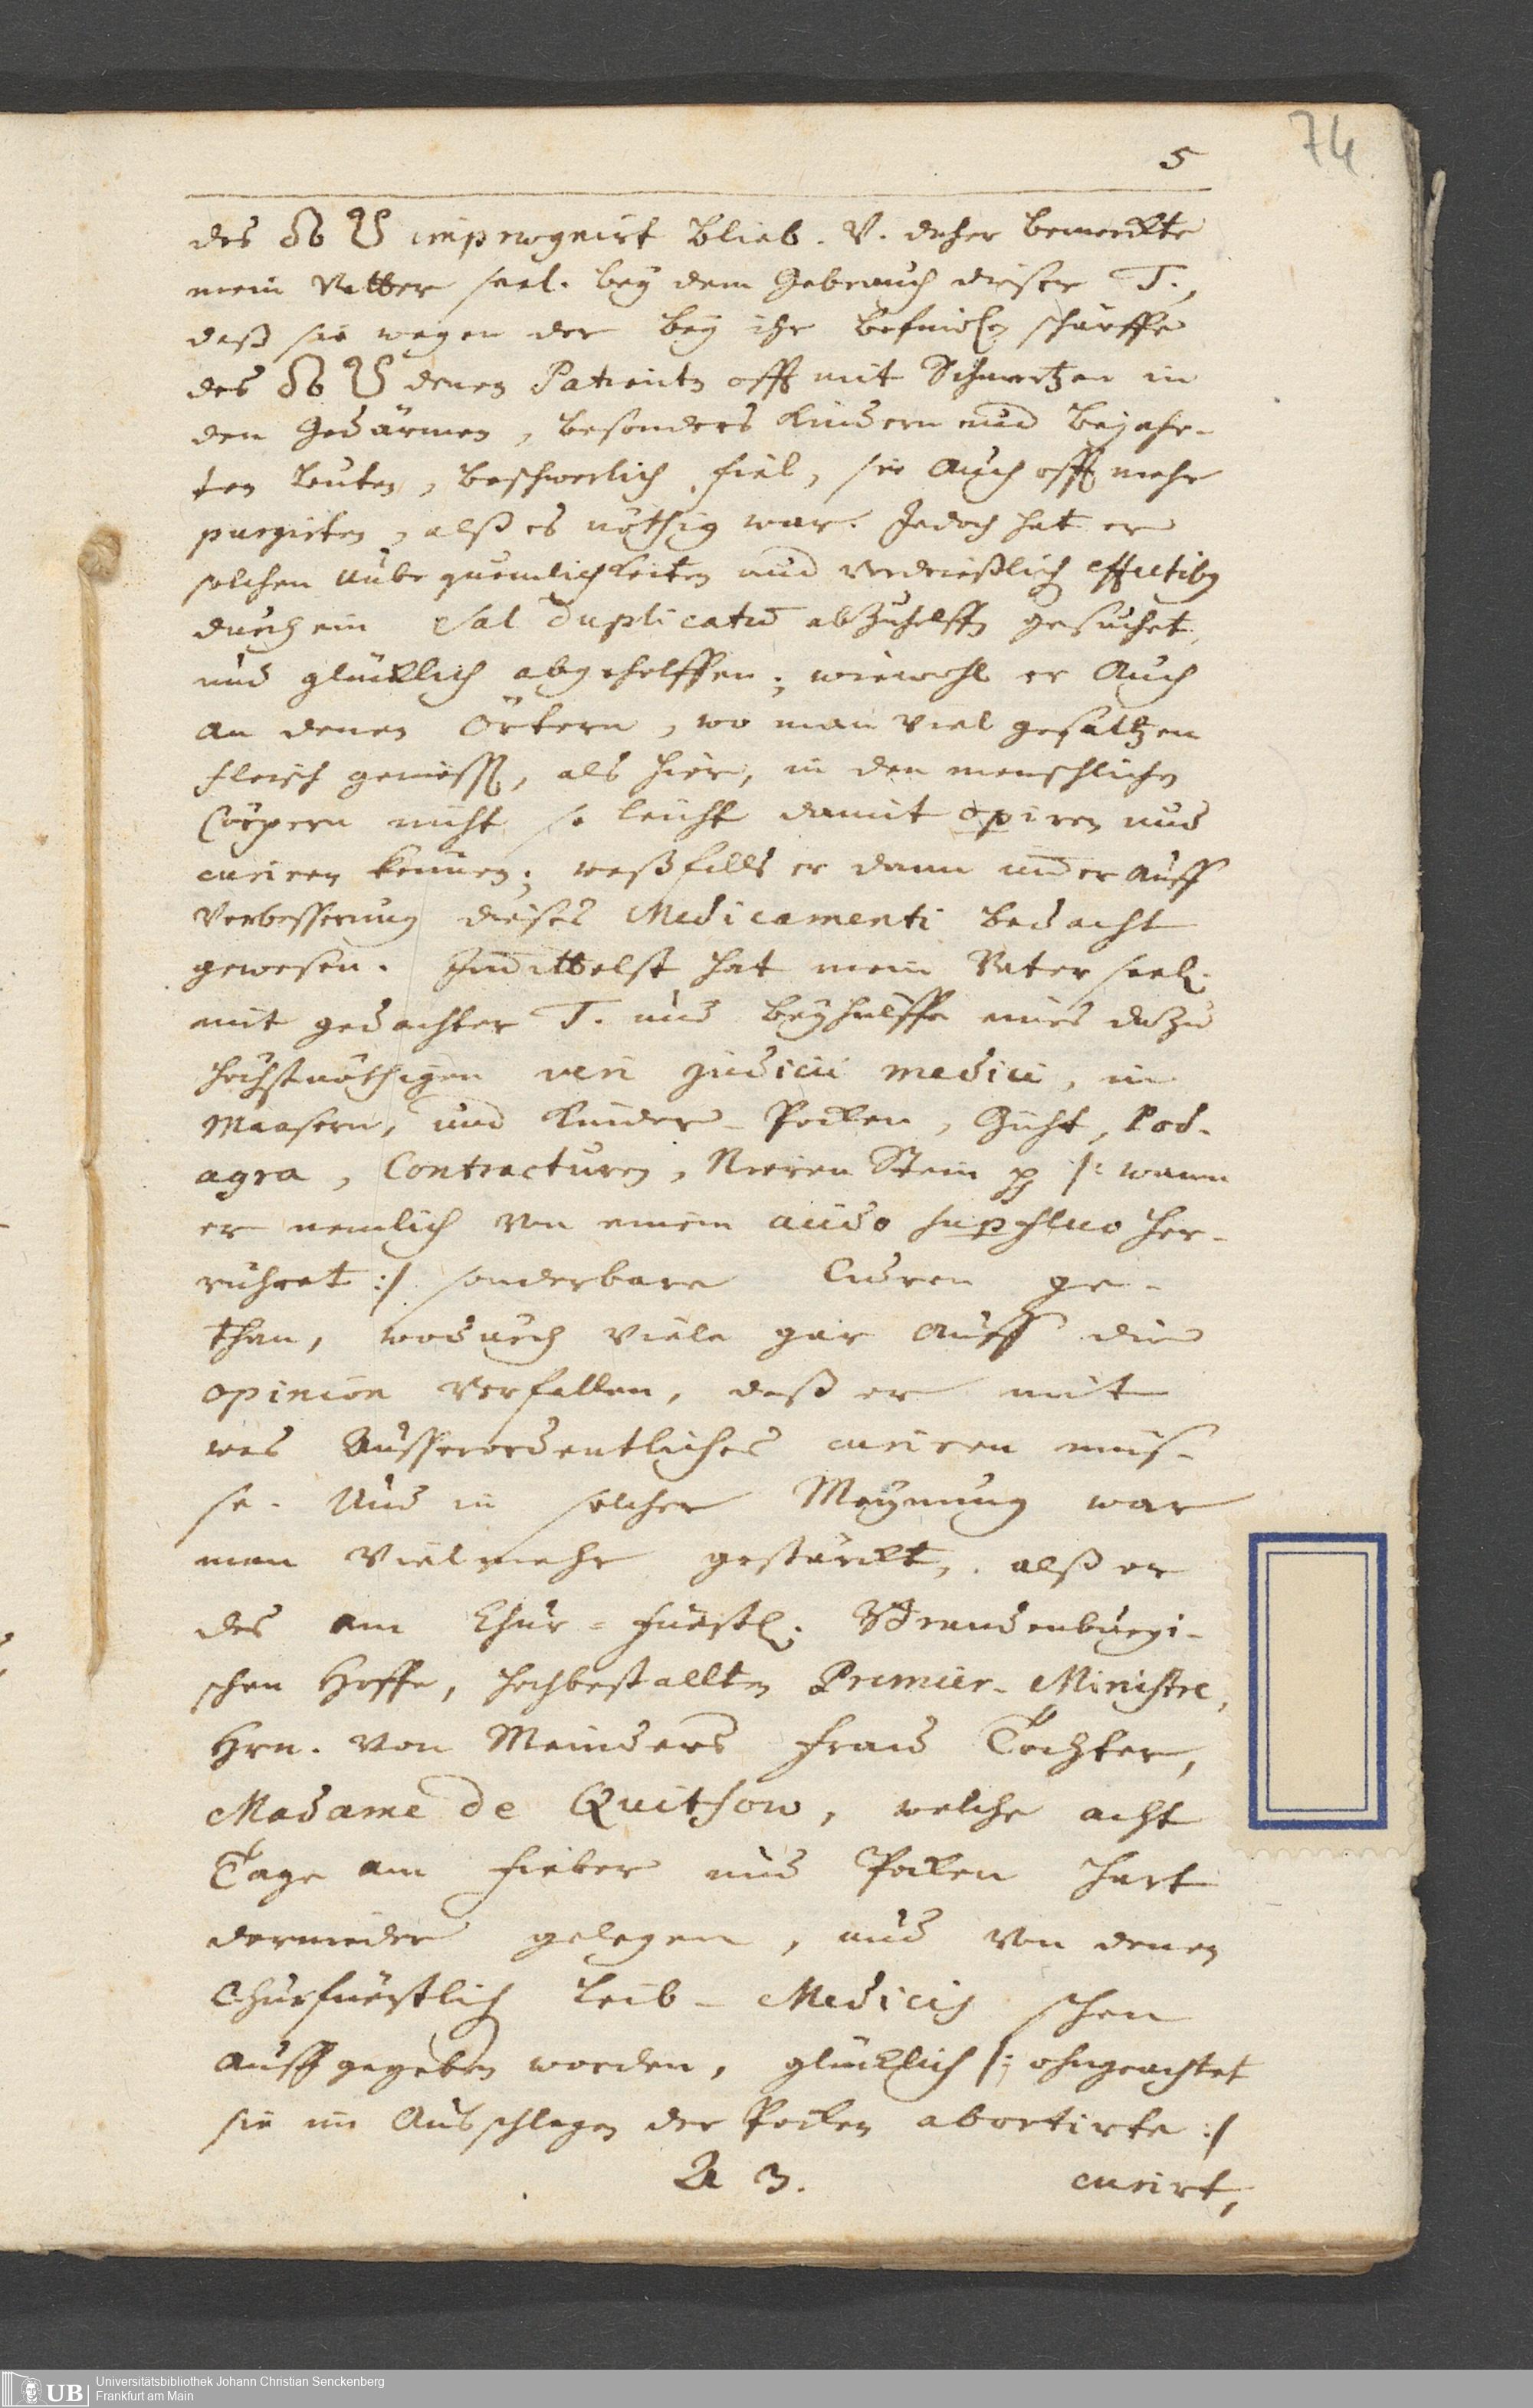 74
5
des impregnirt blieb. V. daher bemerckte
mein Vatter seel. bey dem Gebrauch dieser T.,
daß sie wegen der bey ihr befindl. schärffe
des denen Patienten offt mit Schmertzen in
den Gedärmen, besonders Kindern und bejahr-
ten leuten, beschwerlich fiel, sie auch offt mehr
purgirten, alß es nöthig war. Jedoch hat er
solchen unbequemlichkeiten und verdrießlich effectibus
durch ein Sal duplicatū abzuhelffen gesuchet,
und glücklich abgeholffen; wiewohl er auch
an denen Örtern, wo man viel gesaltzen
fleisch geniesst, als hier, in den menschlichen
Cörpern nicht so leicht damit operiren und
curiren können; weßfalls er dann im̄er auff
Verbesserung dieses Medicamenti bedacht
gewesen. Im̄ittelst hat mein Vater seel.
mit gedachter T. und beyhülffe eines dazu
höchstnöthigen veri judicii medici, in
Maasern, und Kinder-Pocken, Gicht, Pod-
agra, Contracturen, Nieren Stein pp /: wann
er nemlich von einem acido superfluo her-
rühret :/ sonderbare Curen ge-
than, wodurch viele gar auff die
opinion verfallen, daß er mit
was ausserordentliches curiren müs-
se. Und in solcher Meynung war
man vielmehr gestärckt, alß er
des am Chur-fürstl. Brandenburgi-
schen Hoffe, hochbestallten Premier-Ministre,
Hrn. von Meinders Frau Tochter,
Madame de Quitsow, welche acht
Tage am Fieber und Pocken hart
darnieder gelegen, und von denen
Churfürstlich Leib-Medicis schon
auffgegeben worden, glücklich /: ohngeachtet
sie im Ausschlagen der Pocken abortirte :/
A 3. curirt,
UB Universitätsbibliothek Johann Christian Senckenberg
Frankfurt am Main